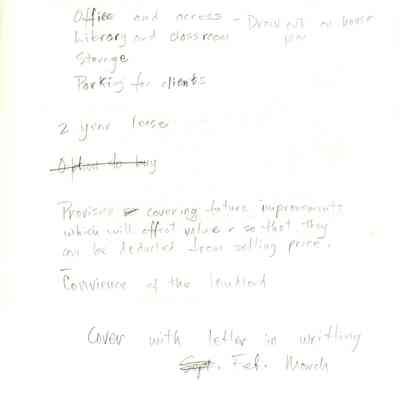 Office and access - Draw out on house
Library and classroom plan
Storage
Parking for clients
2 year lease
Option to buy
Provision covering future improvements
which will effect value so that they
can be deducted from selling price.
Convience of the landlord
Cover with letter in writting
Sept. Feb. March